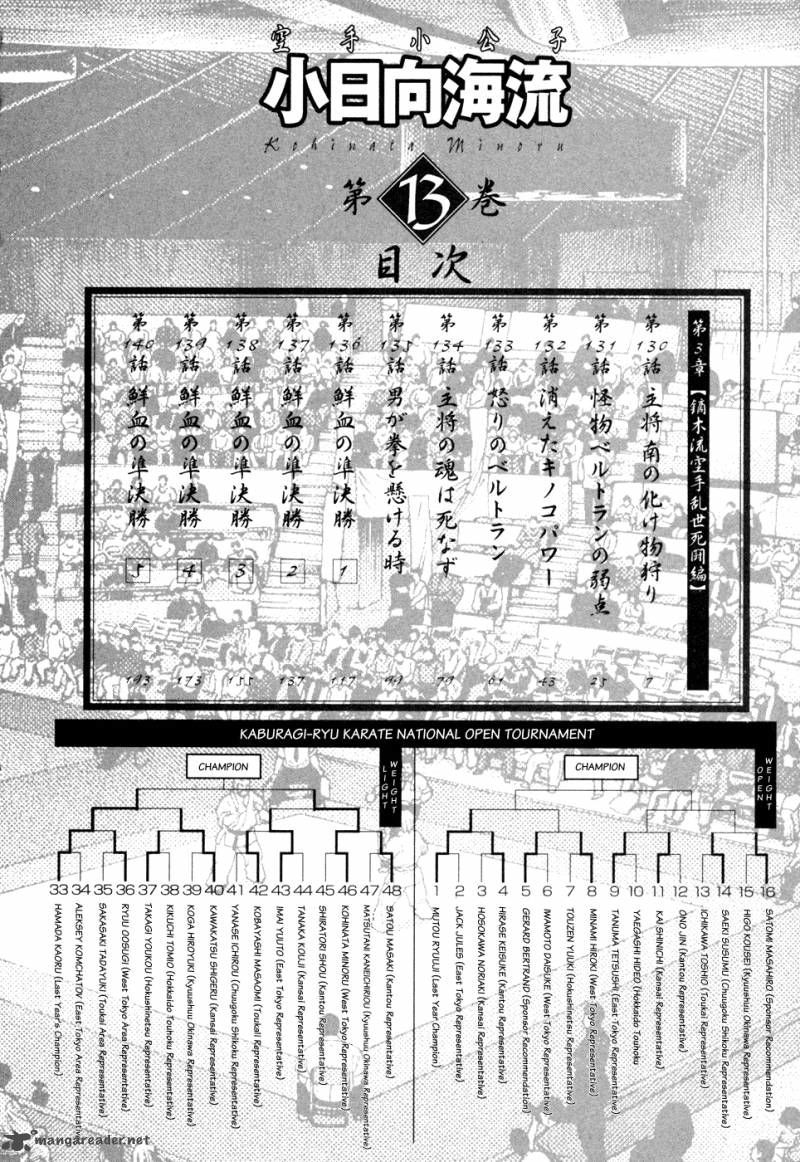 空手小公子
小日向海流
Kohinata Minoru
第13巻
目次
第3章【鏑木流空手乱世死闘編】
第130話 主将 南の化け物狩り 7
第131話 怪物ベルトランの弱点 25
第132話 消えたキノコパワー 43
第133話 怒りのベルトラン 61
第134話 主将の魂は死なず 79
第135話 男が拳を懸ける時 99
第136話 鮮血の準決勝 1 117
第137話 鮮血の準決勝 2 137
第138話 鮮血の準決勝 3 155
第139話 鮮血の準決勝 4 173
第140話 鮮血の準決勝 5 193
KABURAGI-RYU KARATE NATIONAL OPEN TOURNAMENT
CHAMPION
LIGHT WEIGHT
33 HAMADA KAORU (Last Year's Champion)
34 ALEKSEY KONCHATOV (East Tokyo Area Representative)
35 SAKASAKI TADAYUKI (Toukai Area Representative)
36 RYUU OOSUGI (West Tokyo Area Representative)
37 TAKAGI YOUKOU (Hokushinetsu Representative)
38 KIKUCHI TOMIO (Hokkaido Touhoku Representative)
39 KOGA HIROYUKI (Kyuushuu Okinawa Representative)
40 KAWAKATSU SHIGERU (Kansai Representative)
41 YANASE ICHIROU (Chuugoku Shikoku Representative)
42 KOBAYASHI MASAOMI (Toukai Representative)
43 IMAI YUUTO (East Tokyo Representative)
44 TANAKA KOUJI (Kansai Representative)
45 SHIRATORI SHOU (Kantou Representative)
46 KOHINATA MINORU (West Tokyo Representative)
47 MATSUTANI KANEICHIROU (Kyuushuu Okinawa Representative)
48 SATOU MASAKI (Kantou Representative)
CHAMPION
OPEN WEIGHT
1 MUTOU RYUUJI (Last Year Champion)
2 JACK JULES (East Tokyo Representative)
3 HOSOKAWA NORIAKI (Kansai Representative)
4 HIRASE KEISUKE (Kantou Representative)
5 GERARD BERTRAND (Sponsor Recommendation)
6 IWAMOTO DAISUKE (West Tokyo Representative)
7 TOUZEN YUUKI (Hokushinetsu Representative)
8 MINAMI HIROKI (West Tokyo Representative)
9 TANUMA TETSUSHI (East Tokyo Representative)
10 YAEGASHI HIDEO (Hokkaido Touhoku
11 KAJI SHINICHI (Kansai Representative)
12 ONO JIN (Kantou Representative)
13 ICHIKAWA TOSHIO (Toukai Representative)
14 SAEKI SUSUMU (Chuugoku Shikoku Representative)
15 HIGO KOUSEI (Kyuushuu Okinawa Representative)
16 SATOMI MASAHIRO (Sponsor Recommendation)
mangareader.net